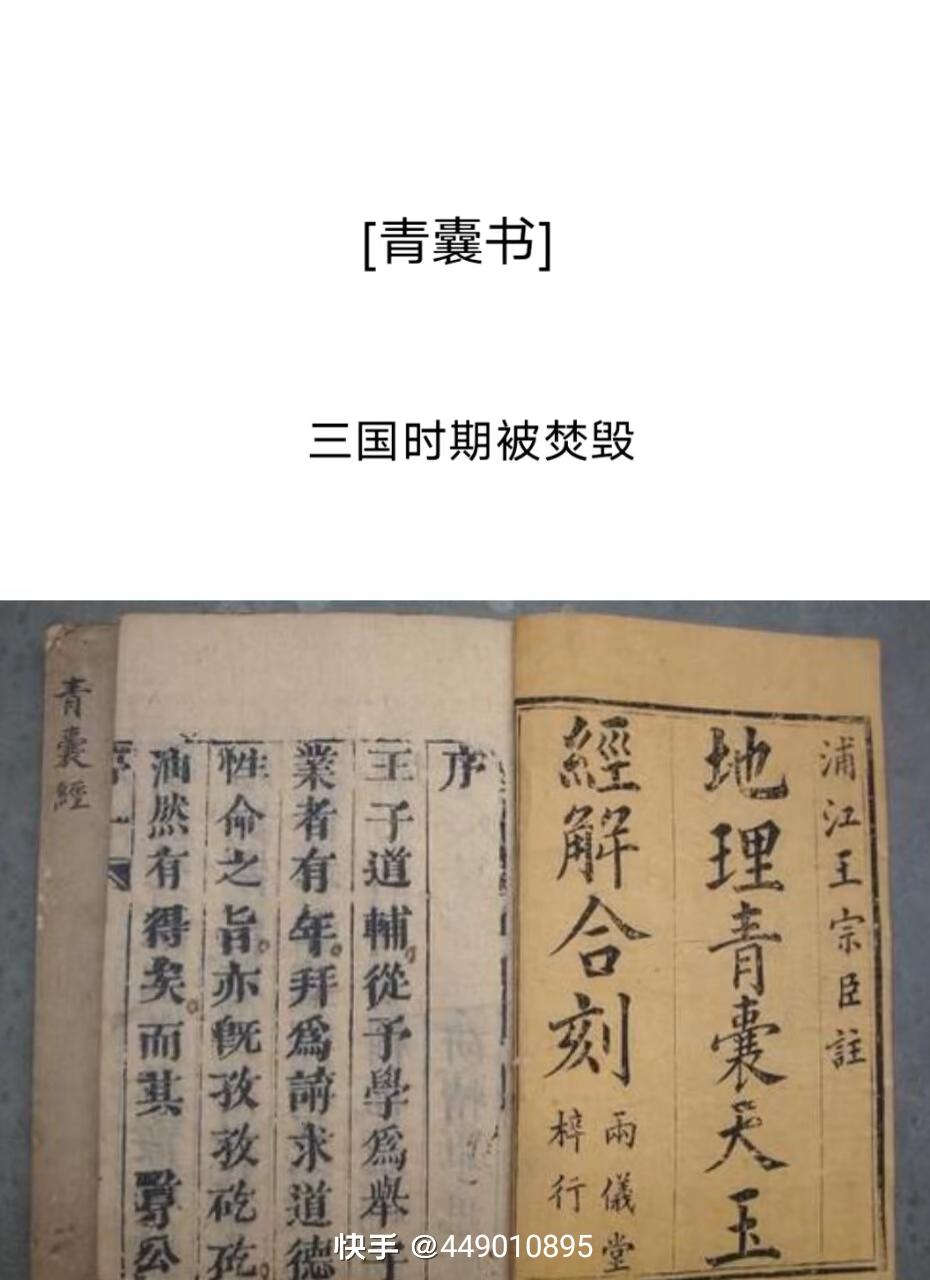 [青囊书]
三国时期被焚毁
浦江王宗臣註
地理青囊天玉
經解合刻
兩儀堂
梓行
序
王子道輔從予學爲舉子
業者有年拜爲請求道德
性命之旨亦既孜孜矻矻
油然有得矣而其尊公
序一
青囊經
快手 @449010895